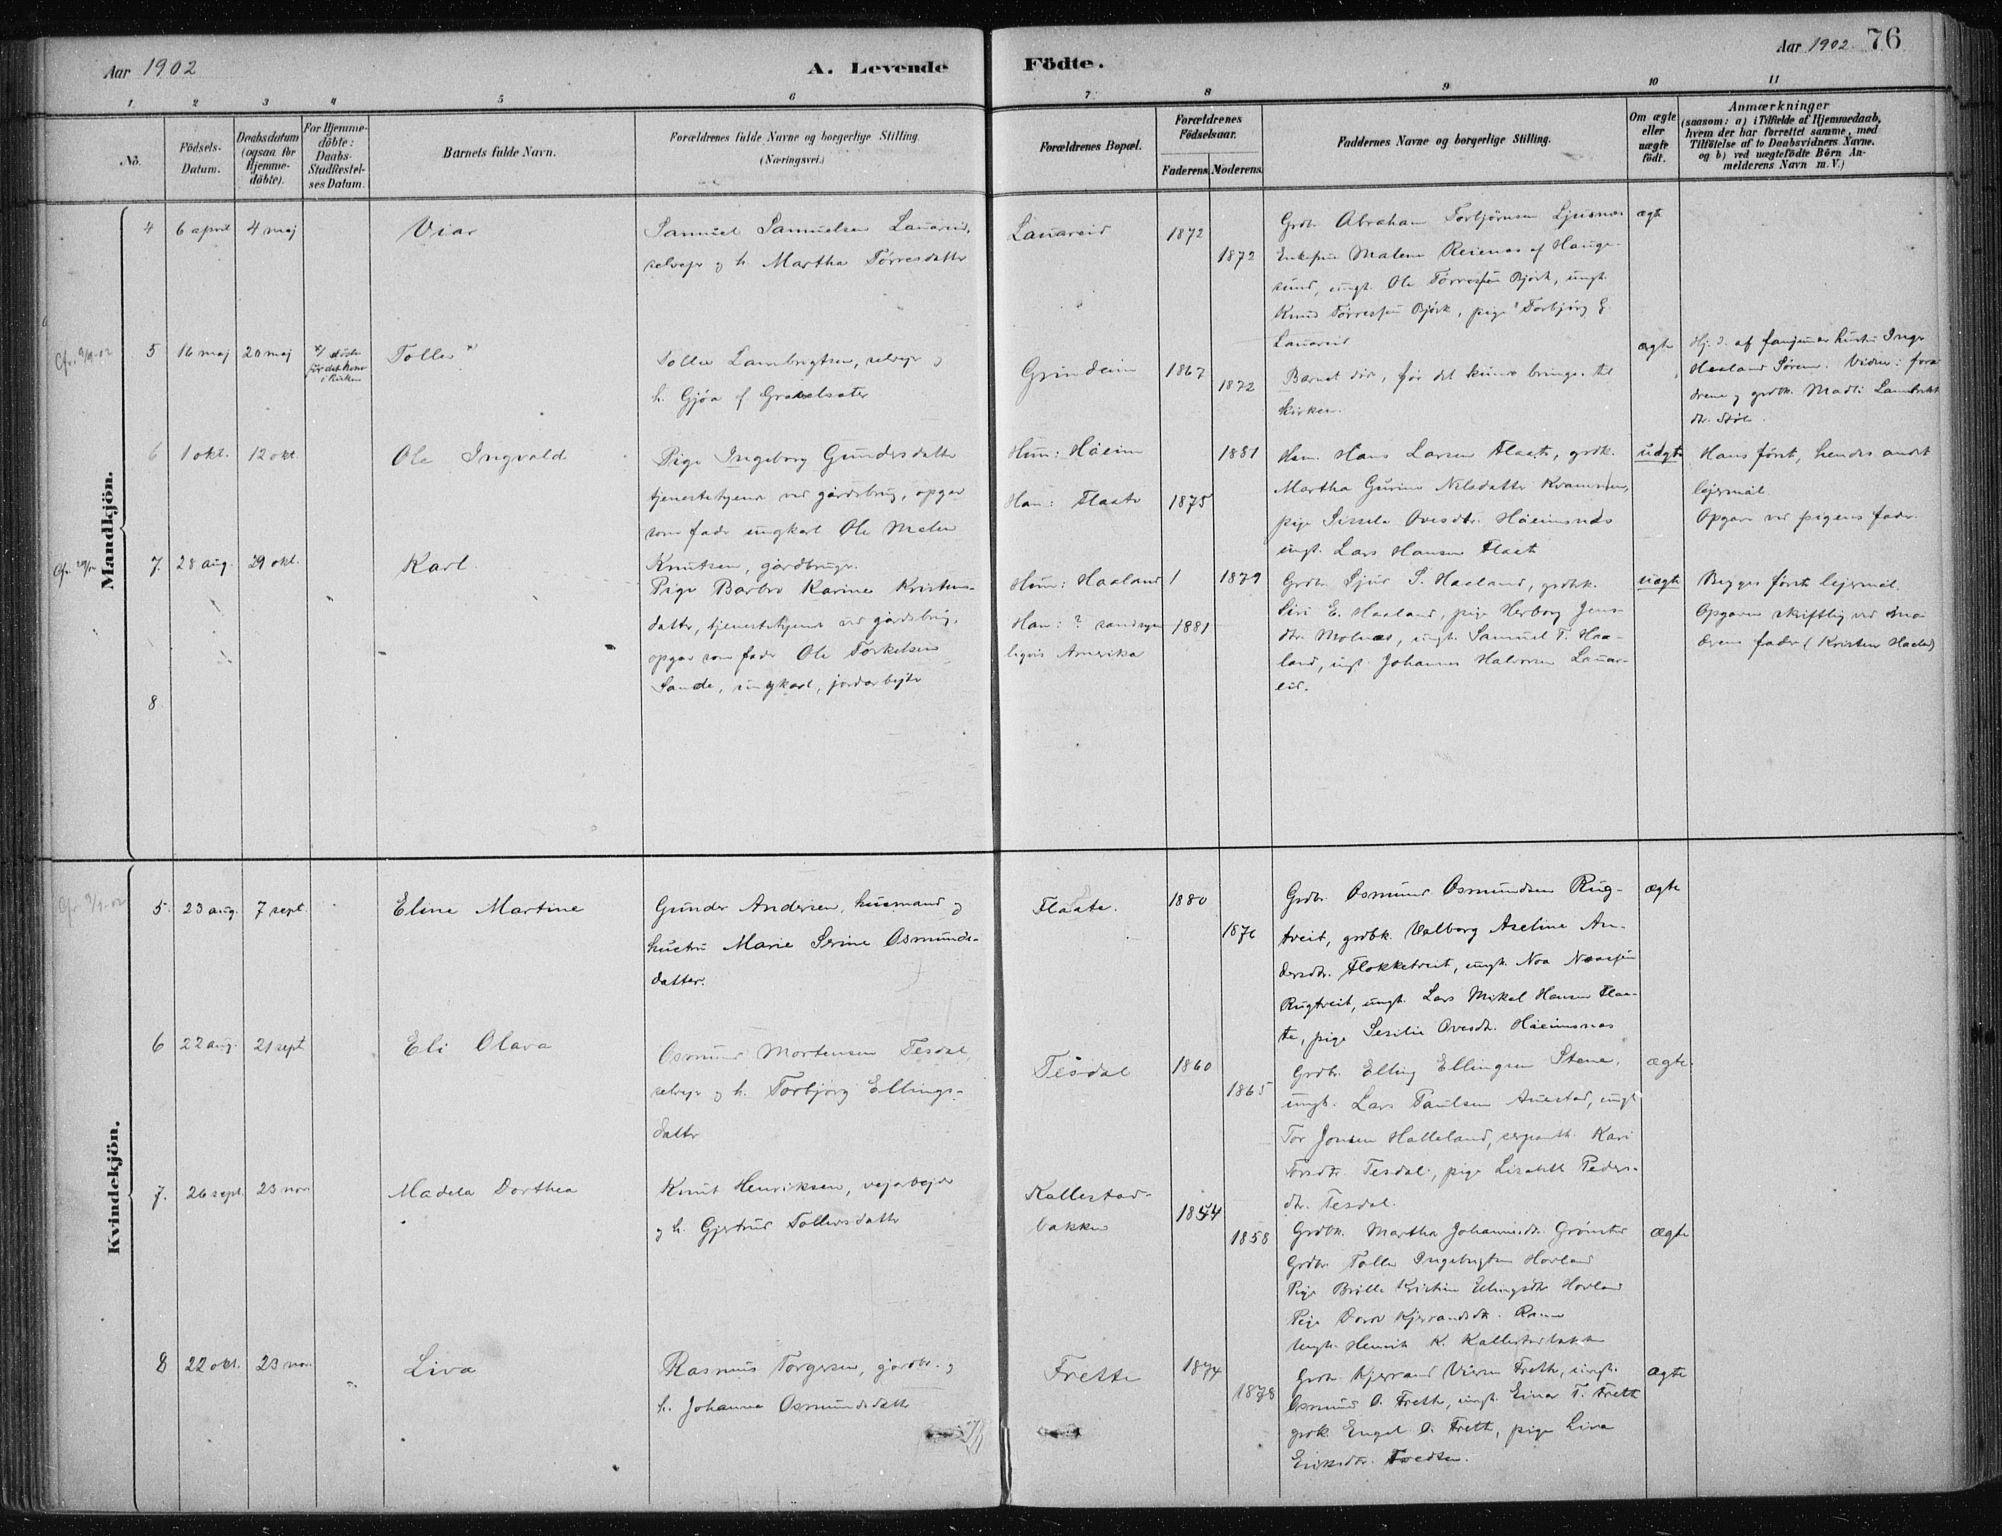 Aar 1902
A. Levende
Födte.
Aar 1902
76
1
2
3
4
5
6
7
8
9
10
11
No.
Födsels-
Datum.
Daabsdatum
(ogsaa for
Hjemme-
döbte).
For Hjemme-
döbte:
Daabs-
Stadfæstel-
ses Datum.
Barnets fulde Navn.
Forældrenes fulde Navne og borgerlige Stilling.
(Næringsvei.)
Forældrenes Bopæl.
Forældrenes
Födselsaar.
Faderens.
Moderens.
Faddernes Navne og borgerlige Stilling.
Om ægte
eller
uægte
födt.
Anmærkninger
(saasom: a) i Tilfælde af Hjemmedaab,
hvem der har forrettet samme, med
Tilföielse af to Daabsvidners Navne.
og b) ved uægtefödte Börn An-
melderens Navn m. V.)
Mandkjön.
4
6 april
4 maj
Viar
Samuel Samuelsen Lauareid,
selvejr og h. Martha Tørresdatter
Lauareid
1872
1872
Grdbr. Abraham Torbjørnsen Ljusnes
Enkefru Malene Reienes af Hauge-
sund, ungk. Ole Tørressen Bjørk, ungk.
Knud Tørressen Bjørk, pige Torbjørg E.
Lauareid
ægt
5
16 maj
20 maj
x/ døde
før det kom
i kirken
Tolles x
Tolle Lambregtsen, selvejr og
h. Gjøa
Grindeim
1867
1872
Barnet døde, før det kunde bringes til
kirken.
ægte
Hj. d. af hustru Inge
Haaland Søren. Vidner: foræ
drene og grdbk. Madli Lambrekt
dtr. Støle.
6
1 okt.
12 okt.
Ole Ingvald
Pige Ingeborg Gundersdatter
tjenestetjener ved gårdsbrug, opgav
som fader ungkarl Ole Melen
Knutsen, gårdbruger
Hun: Håeim
Han: Flaate
1881
1875
Hsm. Hans Larsen Flaate, grdk.
Martha Gurine Nilsdatter
pige Sissela Ovesdtr. Håeimsnes
ungk. Lars Hansen Flaate
uægte
Hans först, hendes andet
lejermål
Opgave ved pigens fader.
7.
28 aug.
29 okt.
Karl
Pige Barbro Karine Kristens-
datter, tjenestetjener ved gårdsbrug,
opgav som fader Ole Torkelsen
Sande, ungkarl, jordarbejder
Hun: Haaland
Han: ? sandsyn
ligvis Amerika
1
1879
1881
Grdbr. Sjur S. Haaland, grdbk.
Siri E. Haaland, pige Herborg Jens-
dtr. Molnes, ungk. Samuel T. Haa-
land, ungk. Johannes Halvorsen Lauar-
eid.
uægte
Begges först lejermål.
Opgave skriftlig ved mo
derens fader (Kristen Haaland)
8
Kvindekjön.
5.
23 aug.
7 sept.
Eline Martine
Gunder Andersen, husmand og
hustru Marie Serine Osmunds-
datter.
Flaate.
1880
1876
Grdbr. Osmund Osmundsen Rug-
tveit, grdbk. Valborg Aseline An-
dersdtr. Flokketveit, ungk. Noa Noasen
Rugtveit, ungk. Lars Mikal Hansen Flaa-
te, pige Sesilie Ovesdtr. Håeimsnes
ægte
6
22 aug.
21 sept
Eli Olava
Osmund Mortensen Tesdal,
selvejr og h. Torbjørg Ellings-
datter
Tesdal
1860
1865
Grdbr. Elling Ellingsen Stene,
ungk. Lars Paulsen Auestad, ungk
Tor Jonsen Halleland, Kari
Torsdtr. Tesdal, pige Lisabet Peders-
dtr. Tesdal.
ægte
7.
26 sept.
23 nov.
Madela Dorthea
Knut Henriksen, vejarbejder
og h. Gjertrud Tollevsdatter
Kallestad-
bakken
1854
1858
Grdbk. Martha Johannesdtr.
Grdbr. Tolle Ingebrigtsen Hovland
Pige Brölle Kristine Ellingsdtr Hovland
Pige Kjerrandsdtr.
Ungk. Henrik K. Kallestadbakke
ægte
8
22 okt.
23 nov.
Liva
Rasmus Torgersen, gårdbr. og
h. Johanna Osmundsdatter
Frette
1874
1878
Grdbr. Kjerrand Frette, ungk.
Osmund O. Frette, ungk. Einar T. Frette
grdk. Engel O. Frette, pige Liva
Eriksdtr. Tvedten.
ægte